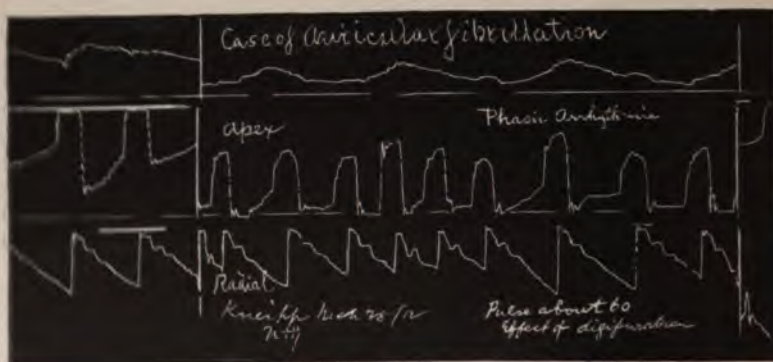 Case of auricular fibrillation
apex
Phasic Arrhythmia
Radial
Pulse about 60
Effect of digipuratum